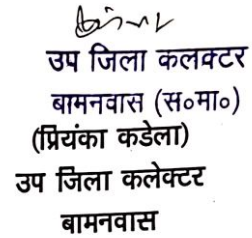 उप जिला कलक्टर
बामनवास (स०मा०)
(प्रियंका कडेला)
उप जिला कलेक्टर
बामनवास